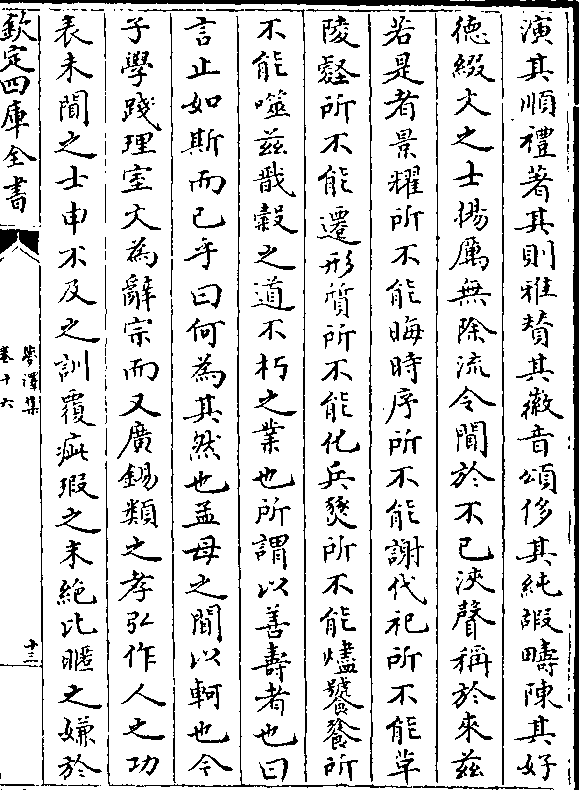 演其順禮著其則雅賛其徽音頌侈其純嘏疇陳其好
德綴文之士揚厲無除流令聞於不已浹聲稱於來兹
若是者景耀所不能晦時序所不能謝代祀所不能革
陵壑所不能遷形質所不能化兵燹所不能燼饕餮所
不能噬兹戩榖之道不朽之業也所謂以善壽者也曰
言止如斯而已乎曰何為其然也孟母之聞以軻也今
子學踐理室文為辭宗而又廣錫類之孝弘作人之功
表未聞之士申不及之訓覆疵瑕之未絶比暱之嫌於
欽定四庫全書
卷十六
十三